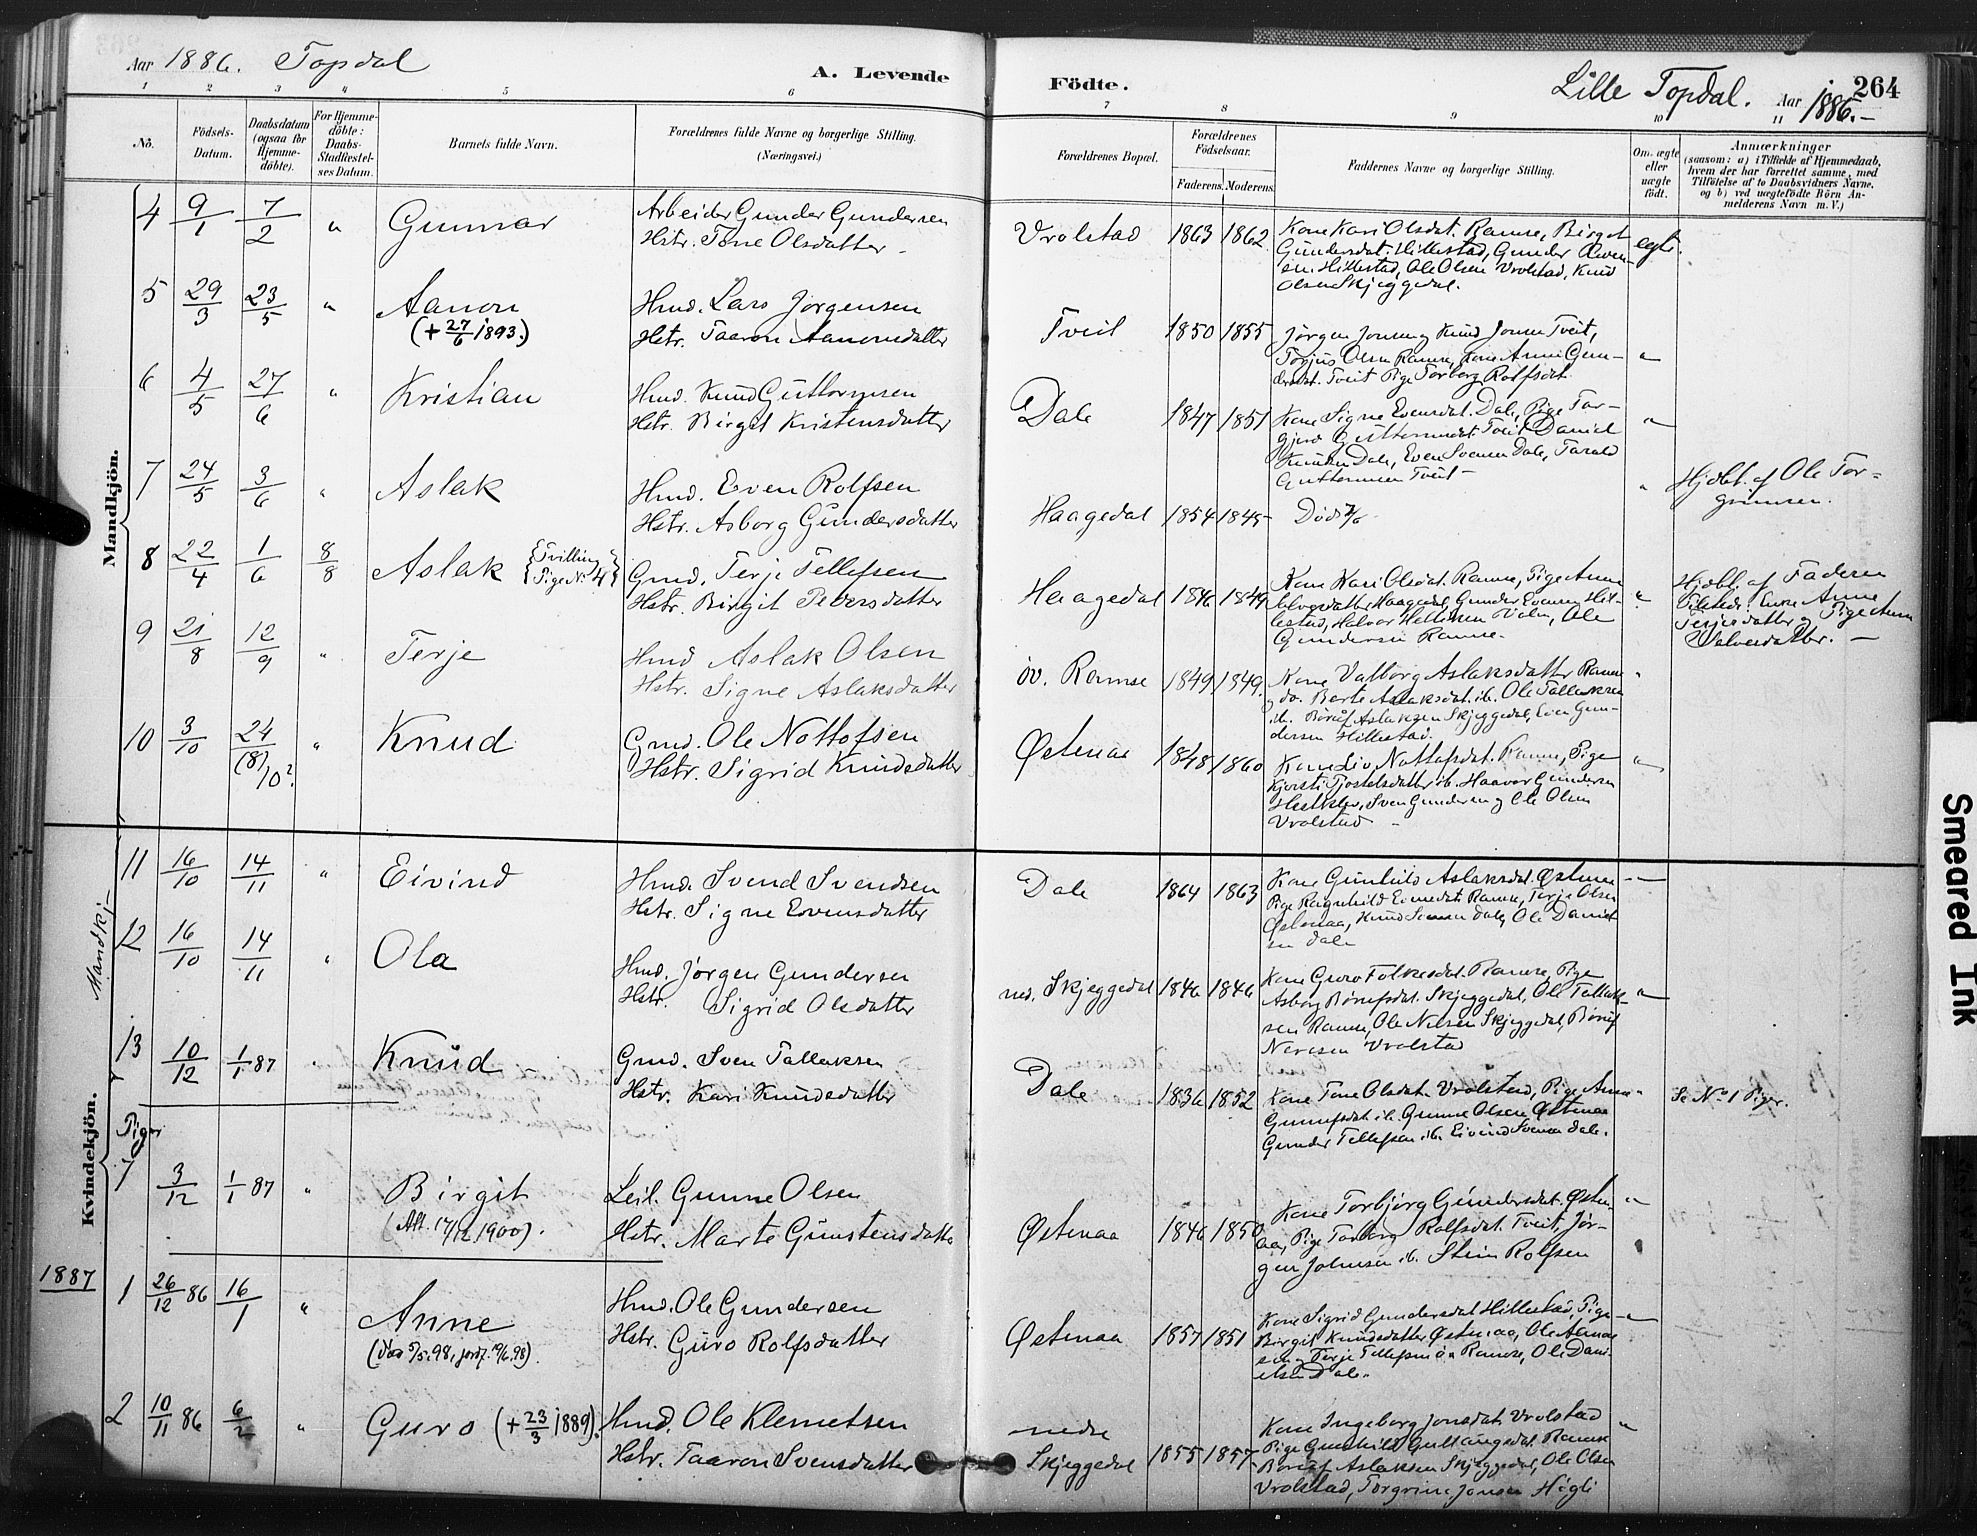 Aar 1886. Topdal
A. Levende
Födte.
Lille Topdal. Aar 1886.-
264
1 2 3 4 5 6 7 8 9 10 11
No.
Födsels-
Datum.
Daabsdatum
(ogsaa for
Hjemme-
döbte).
For Hjemme-
döbte:
Daabs-
Stadfæstel-
ses Datum.
Barnets fulde Navn.
Forældrenes fulde Navne og borgerlige Stilling.
(Næringsvei.)
Forældrenes Bopæl.
Forældrenes
Födselsaar.
Faderens. Moderens.
Faddernes Navne og borgerlige Stilling.
Om ægte
eller
uægte
födt.
Anmærkninger
(saasom: a) i Tilfælde af Hjemmedaab,
hvem der har forrettet samme, med
Tilföielse af to Daabsvidners Navne,
og b) ved uægtefödte Börn An-
melderens Navn m. V.)
Mandkjön.
4 9/1 7/2 " Gunnar
Arbeider Gunder Gundersen
Hstr. Tone Olsdatter -
Vrolstad 1863 1862
Kone Kari Olsdat. Ramse, Birget
Gundersdat. Hillestad, Gunder Even-
sen Hillestad, Ole Olsen Vrolstad, Knud
Olsen Skjeggedal.
egte.
5 29/3 23/5 " Aanon
(+ 27/6 1893.)
Hmd. Lars Jørgensen
Hstr. Taaron Aanonsdatter
Tveit 1850 1855
Jørgen Jonsen og Knud Jonsen Tveit,
Torjus Olsen Ramse, Kone Anne Gun-
dersdat. Tveit Pige Torborg Rolfsdat.
"
6 4/5 27/6 " Kristian
Hmd. Knud Guttormsen
Hstr. Birgit Kristensdatter
Dale 1847 1851
Kone Signe Evensdat. Dale, Pige Tor-
gjerd Guttormsdat. Tveit Daniel
Knutsen Dale, Even Svensen Dale, Tarald
Guttormsen Tveit -
"
7 24/5 3/6 " Aslak
Hmd. Even Rolfsen
Hstr. Asborg Gundersdatter
Haagedal 1854 1845-
Død /6
"
Hjdbt. af Ole Tor-
grimsen.
8 22/4 1/6 8/8 Aslak {Tvilling Pige No 4}
Gmd. Terje Tellefsen
Hstr. Birgit Pedersdatter
Haagedal 1846 1849
Kone Kari Olsdat. Ramse, Pige Anne
Salvesdatter Haagedal, Gunder Evensen Hil-
lestad, Halvor, Ole
Gundersen Ramse.
"
Hjdbt. af Faderen
Tilstede: Enke Anne
Terjesdatter og Pige Anne
Salvesdatter. -
9 21/8 12/9 " Terje
Hmd Aslak Olsen
Hstr. Signe Aslaksdatter
öv. Ramse 1849 1849.
Kone Valborg Aslaksdatter Ramse
do. Berte Aslaksdat. ib. Ole Tallaksen
ib. Børuf Aslaksen Skjeggedal, Even Gun-
dersen Hillestad.
"
10 3/10 24/(8)/10? " Knud
Gmd. Ole Nottofsen
Hstr. Sigrid Knudsdatter
Østenaa 1848 1860
Kone Liv Nottofsdat. Ramse, Pige
Kjersti Tjostelsdatter ib. Haavor Gundersen
, Sven Gundersen og Ole Olsen
Vrolstad -
"
Mandkj-
11 16/10 14/11 " Eivind
Hmd. Svend Svendsen
Hstr. Signe Evensdatter
Dale 1864 1863
Kone Gunhild Aslaksdat. Østenaa
Pige Ragnhild Evensdat. Ramse, Terje Olsen
Østenaa, Knud Svensen Dale, Ole Daniel-
sen Dale
- -
12 16/10 14/11 " Ola
Hmd. Jørgen Gundersen
Hstr. Sigrid Olsdatter
ned. Skjeggedal 1846 1846
Kone Guro Folkesdat. Ramse, Pige
Asborg Børufsdat. Skjeggedal, Ole Tellef-
sen Ramse, Ole Nilsen Skjeggedal, Børuf
Nerisen Vrolstad
"
13 10/12 1/1 87 " Knud
Gmd. Sven Tallaksen
Hstr. Kari Knudsdatter
Dale 1836 1852
Kone Tone Olsdat. Vrolstad, Pige Anne
Gunnufsdat. ib. Gunne Olsen Østenaa
Gunder Tellefsen ib. Eivind Svensen Dale.
"
Se No 1 Piger.
Kvindekjön.
Piger
7 3/12 1/1 87 " Birgit
(Att. 17/12 1900).
Leil. Gunne Olsen
Hstr. Marte Gunstensdatter
Østenaa 1846 1850
Kone Torbjørg Gundersdat. Østen-
aa, Pige Torborg Rolfsdat. Tveit, Jør-
gen Johnsen ib. Stein Rolfsen
"
1887
1 26/12 86 16/1 " Anne
(død 5/5 98, jordf. 19/6 98).
Hmd. Ole Gundersen
Hstr. Guro Rolfsdatter
Østenaa 1857 1851
Kone Sigrid Gundersdat Hillestad, Pige
Birgit Knudsdatter Østenaa, Ole
sen, Terje Tellefsen ö. Ramse, Ole Dani-
elsen Dale.
"
2 10/11 86 6/2 " Guro (+ 23/3 1889).
Hmd. Ole Klemetsen
Hstr. Taaron Svensdatter
nedre
Skjeggedal 1855 1857
Kone Ingeborg Jonsdat. Vrolstad
Pige Gunhild Ramse
Børuf Aslaksen Skjeggedal, Ole Olsen
Vrolstad, Torgrim Jonsen Högli
"
Smeared Ink